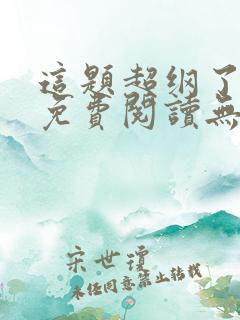 這題超綱了
免費閱讀無
宋世瓊
未经同意禁止转载